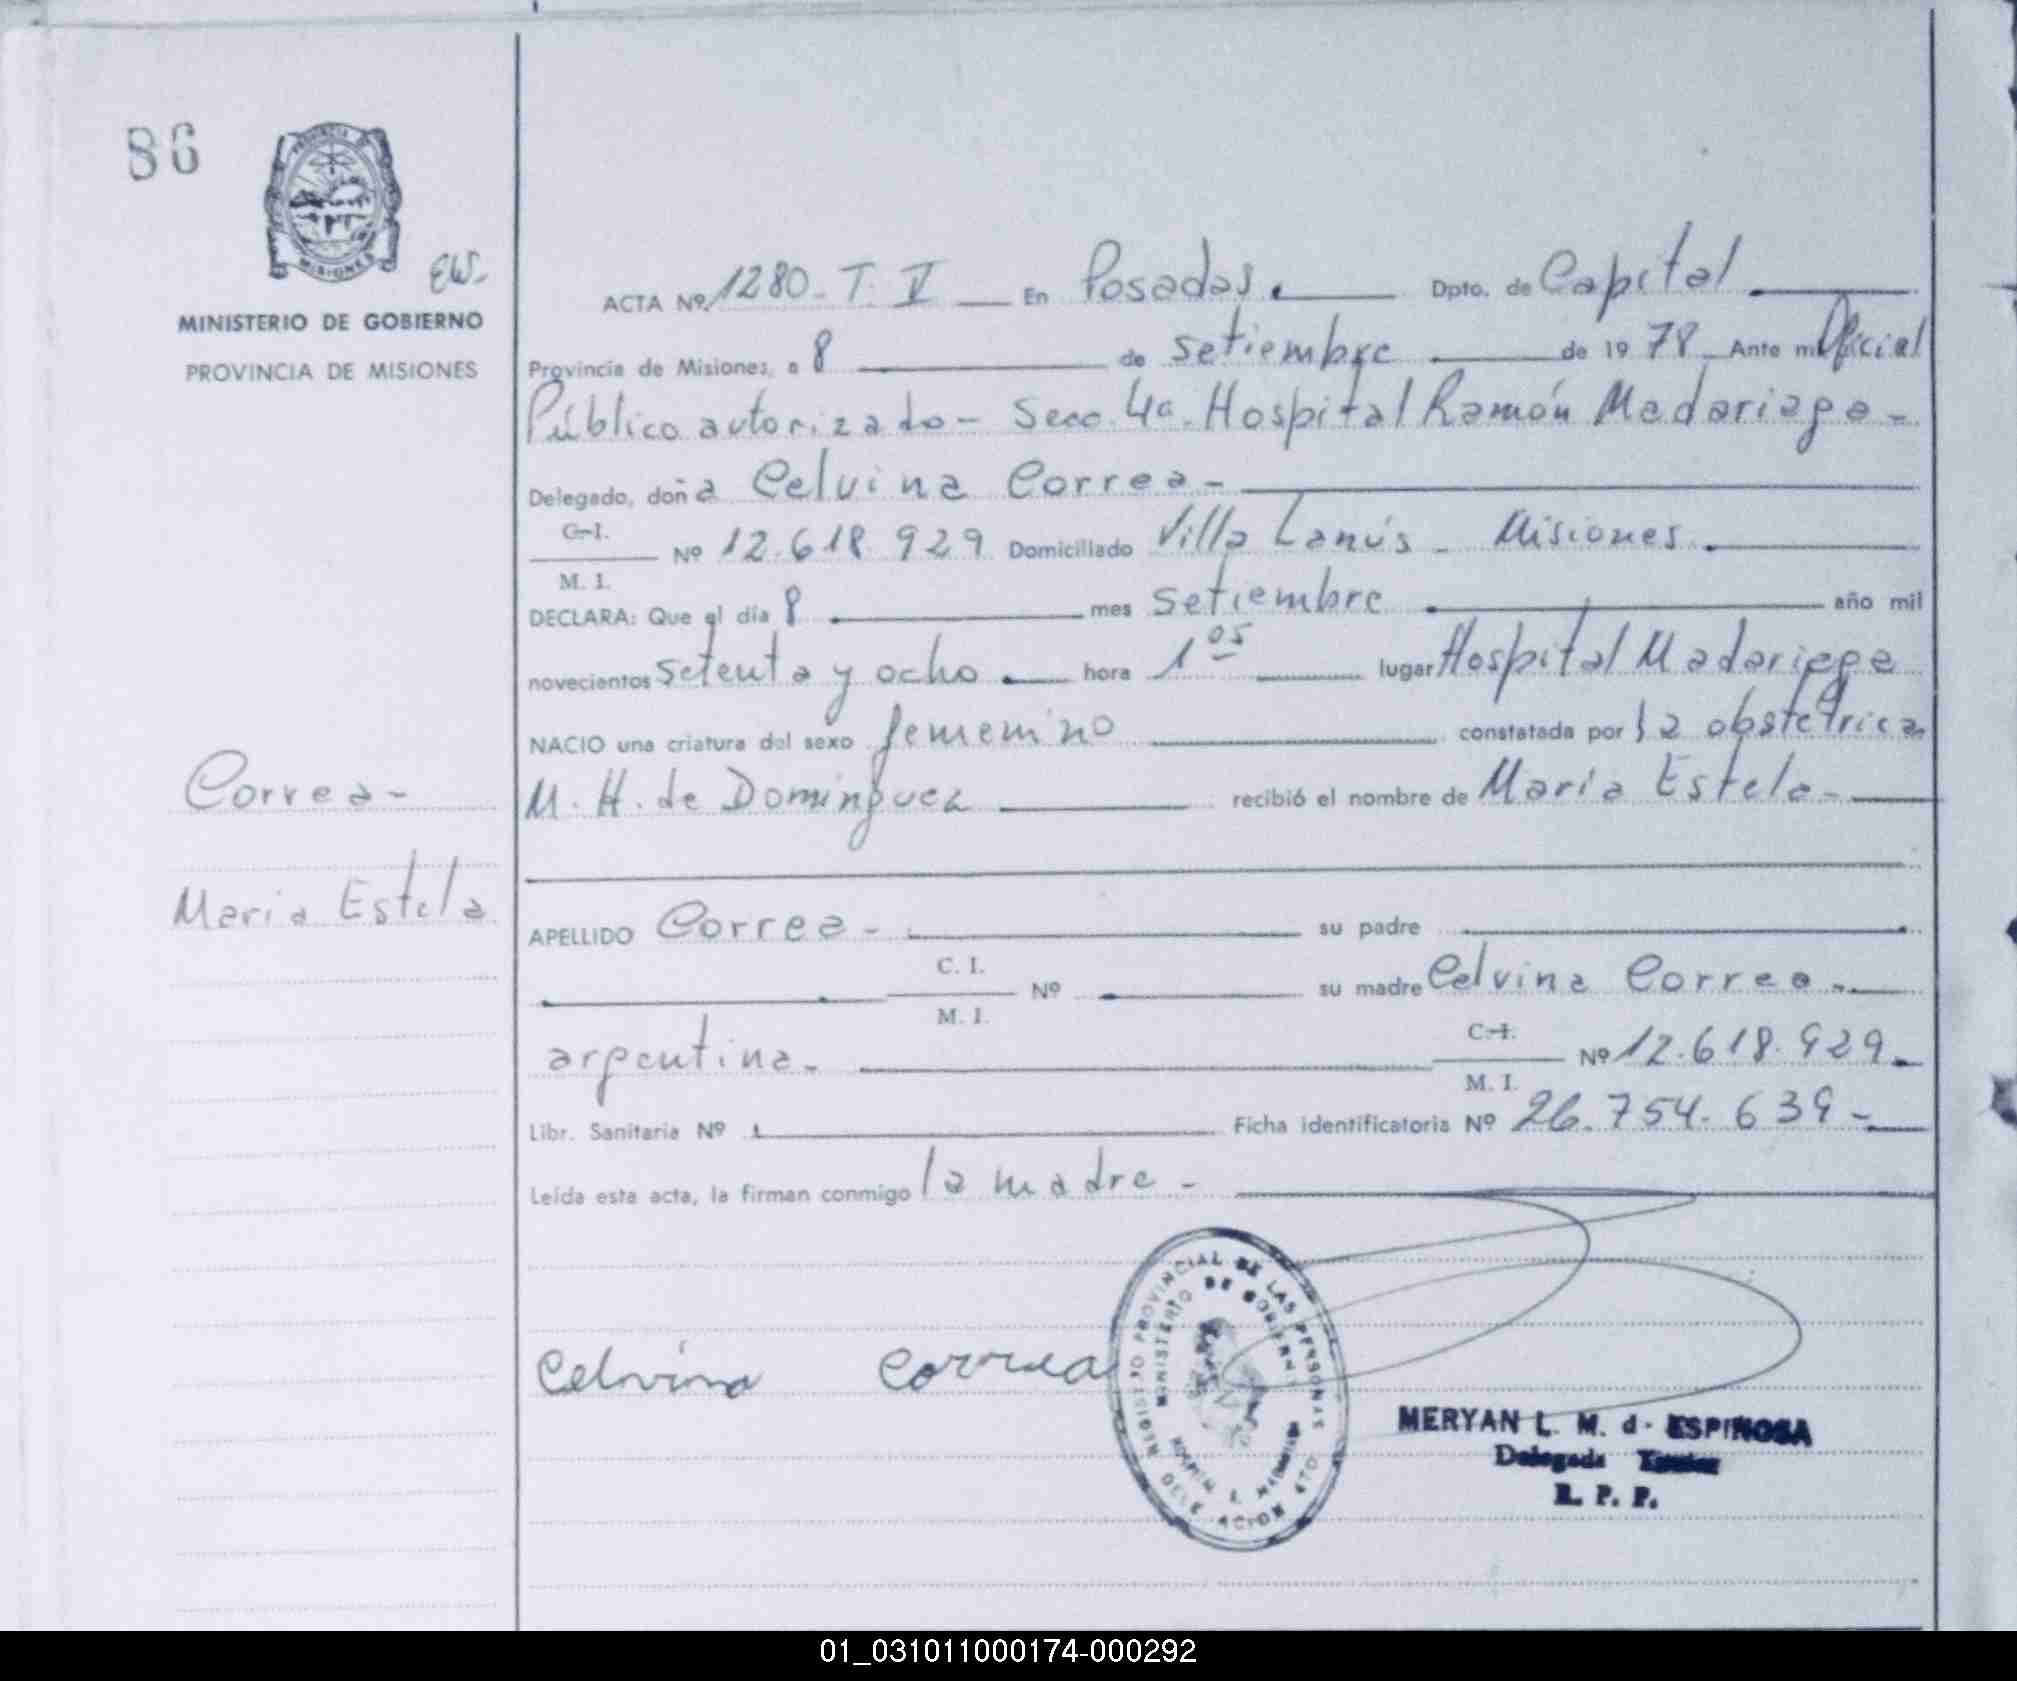 86
PROVINCIA DE
MISIONES
EW-
MINISTERIO DE GOBIERNO
PROVINCIA DE MISIONES
ACTA Nº 1280 - T. V En Posadas. Dpto. de Capital
Provincia de Misiones, a 8 de setiembre de 1978 Ante mi Oficial
Público autorizado - Secc. 4a. Hospital Ramón Madariaga -
Delegado, doña Celvina Correa -
C. I.
Nº 12.618.929 Domiciliado Villa Lanús - Misiones.
M. I.
DECLARA: Que el día 8 mes setiembre año mil
novecientos setenta y ocho hora 1 05 lugar Hospital Madariaga
NACIO una criatura del sexo femenino constatada por la obstetrica
M. H. de Dominguez recibió el nombre de María Estela -
Correa -
María Estela
APELLIDO Correa - su padre
C. I.
Nº su madre Celvina Correa -
M. I.
argentina - C. I. Nº 12.618.929 -
M. I.
Libr. Sanitaria Nº Ficha identificatoria Nº 26.754.639 -
Leída esta acta, la firman conmigo la madre -
Celvina Correa
REGISTRO PROVINCIAL DE LAS PERSONAS
MINISTERIO DE GOBIERNO
DELEGACION 4TO.
MERYAN L. M. d. ESPINOSA
Delegada
R. P. P.
01_031011000174-000292